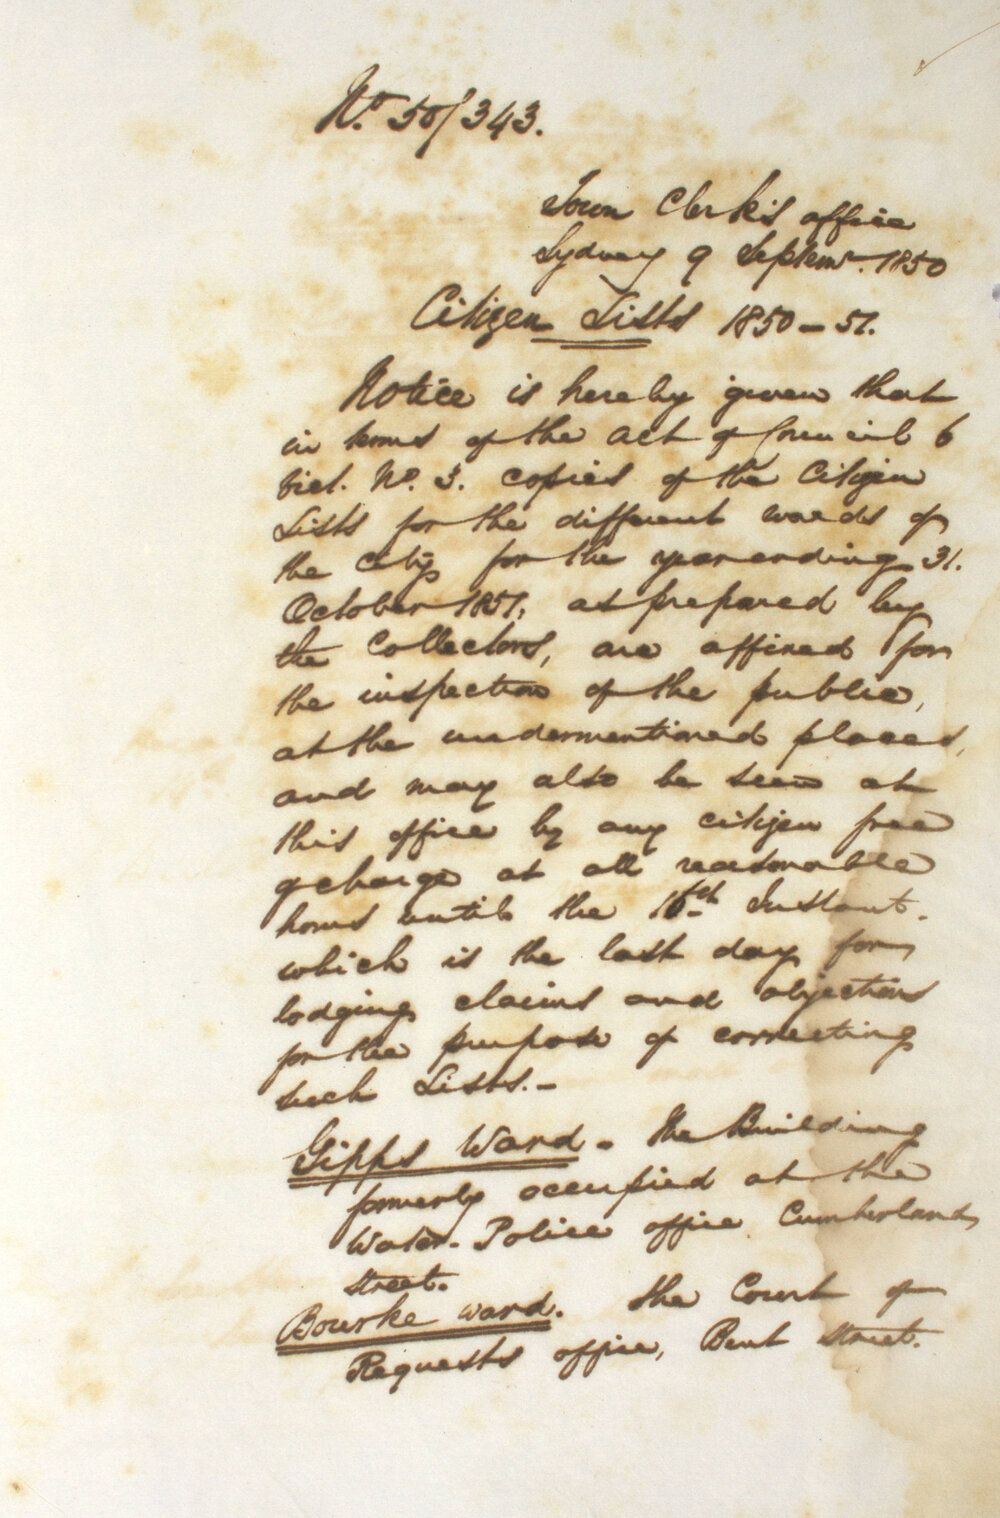 No. 50/343.
Town Clerk's office
Sydney 9 Septemr. 1850
Citizen Lists 1850-51.
Notice is hereby given that
in terms of the act of Council 6
Vict. No. 3. copies of the Citizen
Lists for the different wards of
the City for the year ending 31.
October 1851, as prepared by
the Collectors, are affixed for
the inspection of the public,
at the undermentioned places,
and may also be seen at
this office by any citizen free
of charge at all reasonable
hours until the 16th Instant.
which is the last day for
lodging claims and objections
for the purpose of correcting
such Lists.-
Gipps Ward - the Building
formerly occupied at the
Water-Police office Cumberland
street.
Bourke ward. the Court of
Requests office, Bent street.